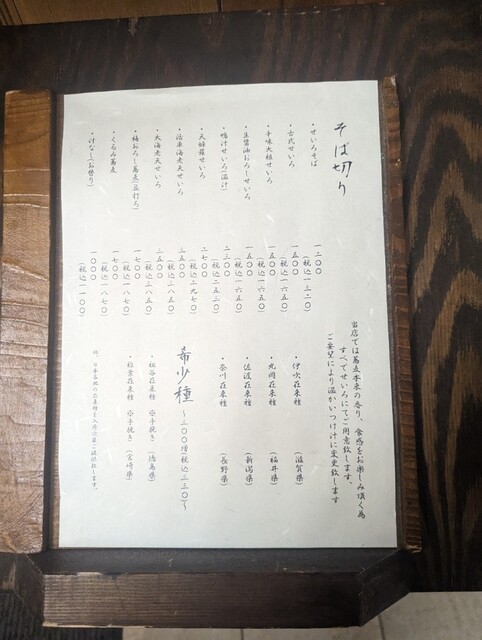 そば切り
・せいろそば
一二〇〇
(税込一三二〇)
・古式せいろ
一五〇〇
(税込一六五〇)
・辛味大根せいろ
一五〇〇
(税込一六五〇)
・生醤油おろしせいろ
一五〇〇
(税込一六五〇)
・鴨汁せいろ(温汁)
二三〇〇
(税込二五三〇)
・天婦羅せいろ
二七〇〇
(税込二九七〇)
・活車海老天せいろ
三五〇〇
(税込三八五〇)
・大海老天せいろ
三五〇〇
(税込三八五〇)
・梅おろし蕎麦
一七〇〇
(税込一八七〇)
・くるみ蕎麦
一七〇〇
(税込一八七〇)
(お替り)
一〇〇〇
(税込一一〇〇)
当店では蕎麦本来の香り、食感をお楽しみ頂く為
すべてせいろにてご用意致します。
ご要望により温かいつけ汁に変更致します
・伊吹在来種 (滋賀県)
・丸岡在来種 (福井県)
・佐渡在来種 (新潟県)
・奈川在来種 (長野県)
希少種 〜三〇〇増税込三三〇〜
・祖谷在来種 ※手挽き (徳島県)
・椎葉在来種 ※手挽き (宮崎県)
他、日本各地の在来種を入荷次第ご提供致します。